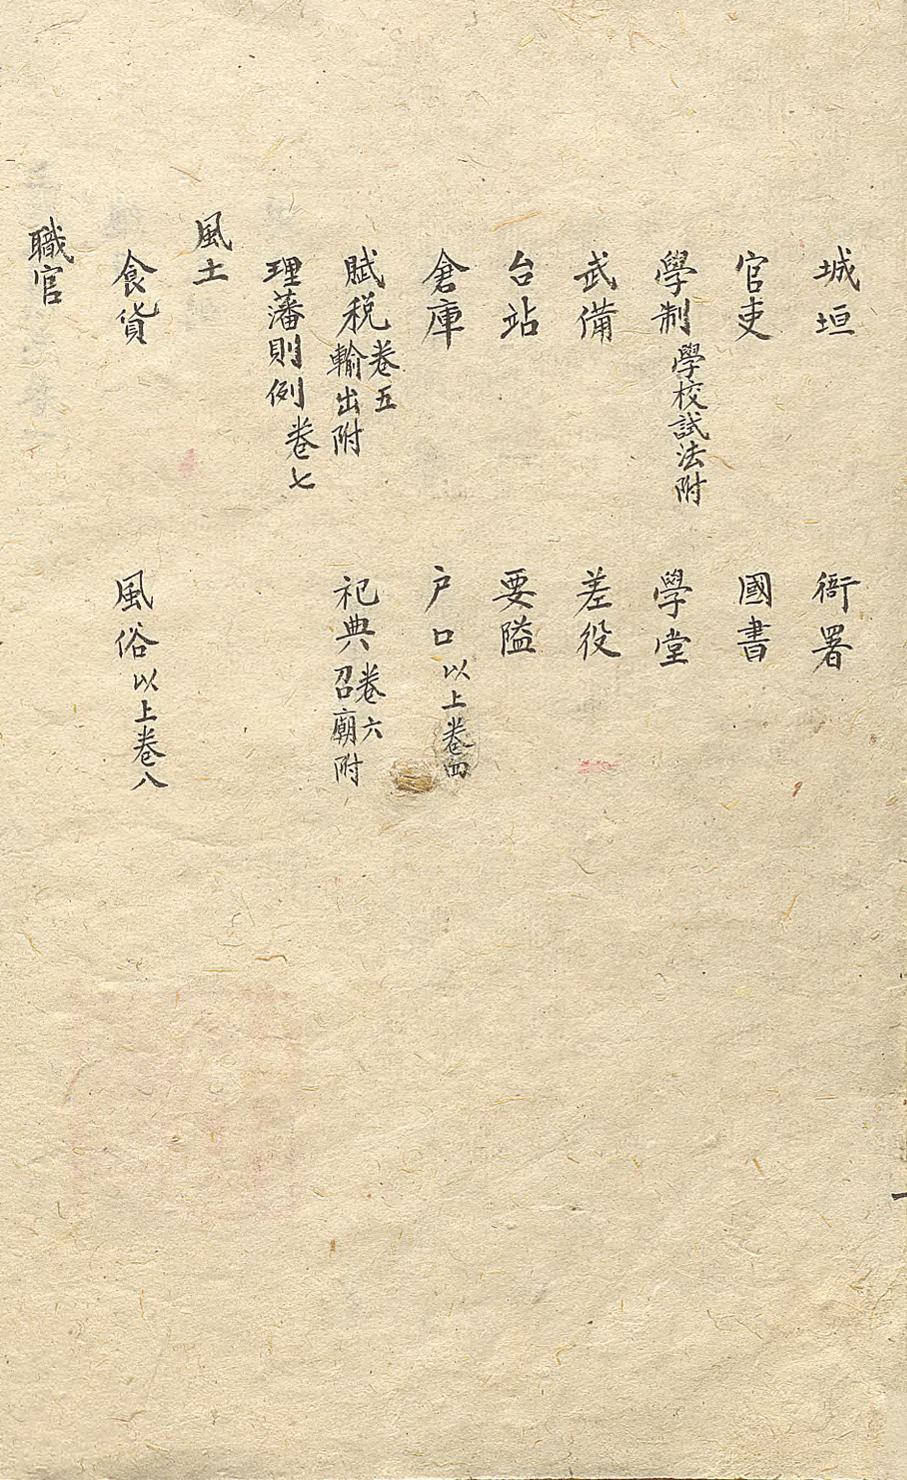 城垣　衙署
官吏　國書
學制學校試法附　學堂
武備　差役
台站　要隘
倉庫　戶口以上卷四
賦稅卷五輸出附　祀典卷六召廟附
理藩則例卷七
風土
食貨　風俗以上卷八
職官